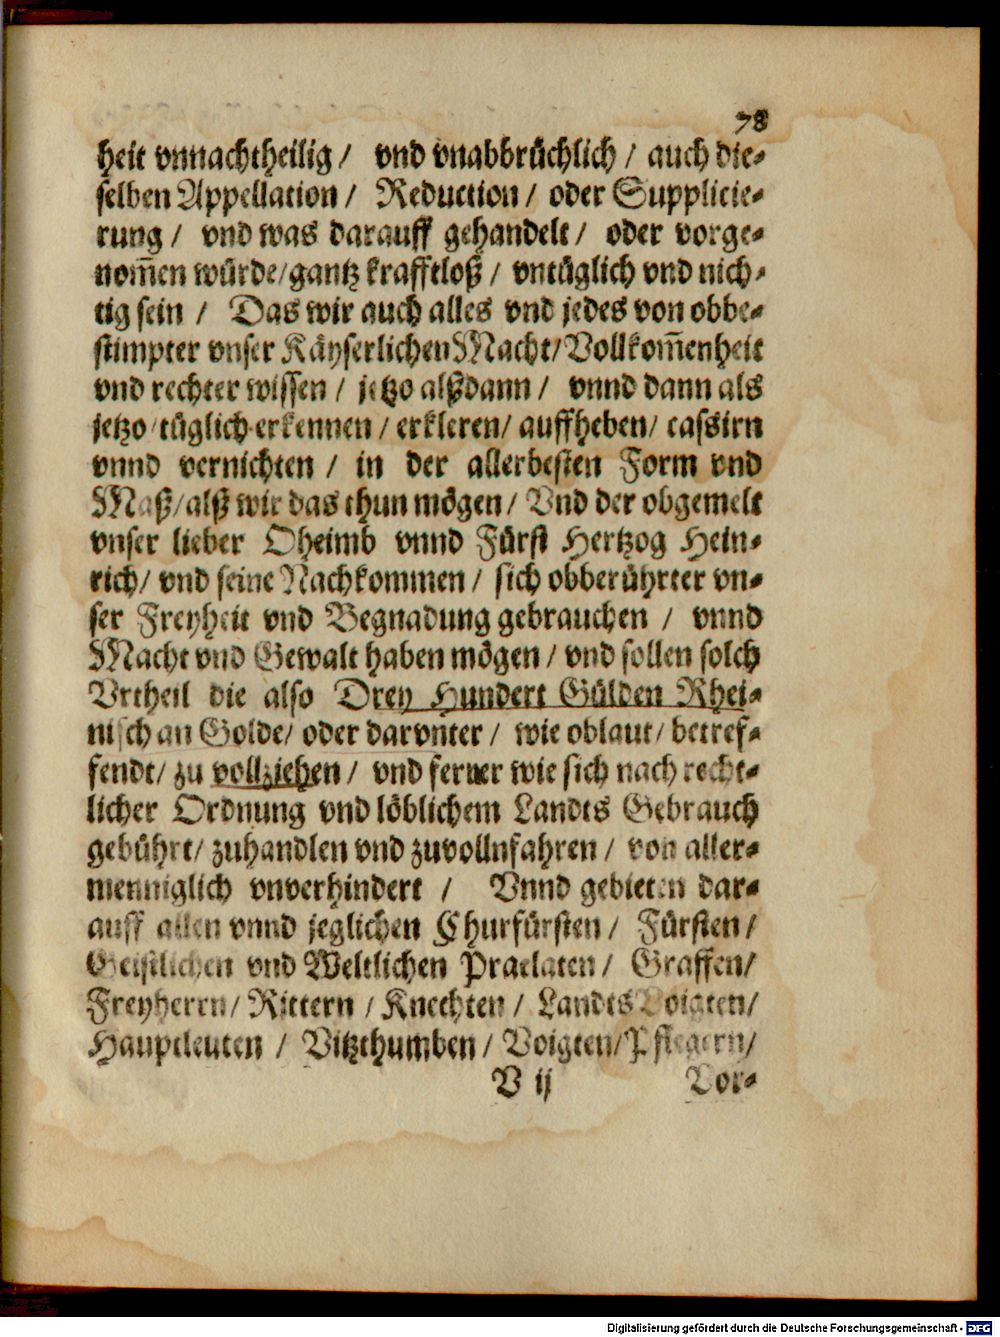 78
heit vnnachtheilig / vnd vnabbrüchlich / auch die-
selben Appellation / Reduction / oder Supplicie-
rung / vnd was darauff gehandelt / oder vorge-
nom̄en würde / gantz krafftloß / vntüglich vnd nich-
tig sein / Das wir auch alles vnd jedes von obbe-
stimpter vnser Käyserlichen Macht / Vollkom̄enheit
vnd rechter wissen / jetzo alßdann / vnnd dann als
jetzo / tüglich erkennen / erkleren / auffheben / cassirn
vnnd vernichten / in der allerbesten Form vnd
Maß / alß wir das thun mögen / Vnd der obgemelt
vnser lieber Oheimb vnnd Fürst Hertzog Hein-
rich / vnd seine Nachkommen / sich obberührter vn-
ser Freyheit vnd Begnadung gebrauchen / vnnd
Macht vnd Gewalt haben mögen / vnd sollen solch
Vrtheil die also Drey Hundert Gülden Rhei-
nisch an Golde / oder darvnter / wie oblaut / betref-
fendt / zu vollziehen / vnd ferner wie sich nach recht-
licher Ordnung vnd löblichem Landts Gebrauch
gebührt / zuhandlen vnd zuvollnfahren / von aller-
menniglich vnverhindert / Vnnd gebieten dar-
auff allen vnnd jeglichen Churfürsten / Fürsten /
Geistlichen vnd Weltlichen Praelaten / Graffen /
Freyherrn / Rittern / Knechten / Landts Voigten /
Hauptleuten / Vitzthumben / Voigten / Pflegern /
V ij Vor-
Digitalisierung gefördert durch die Deutsche Forschungsgemeinschaft - DFG